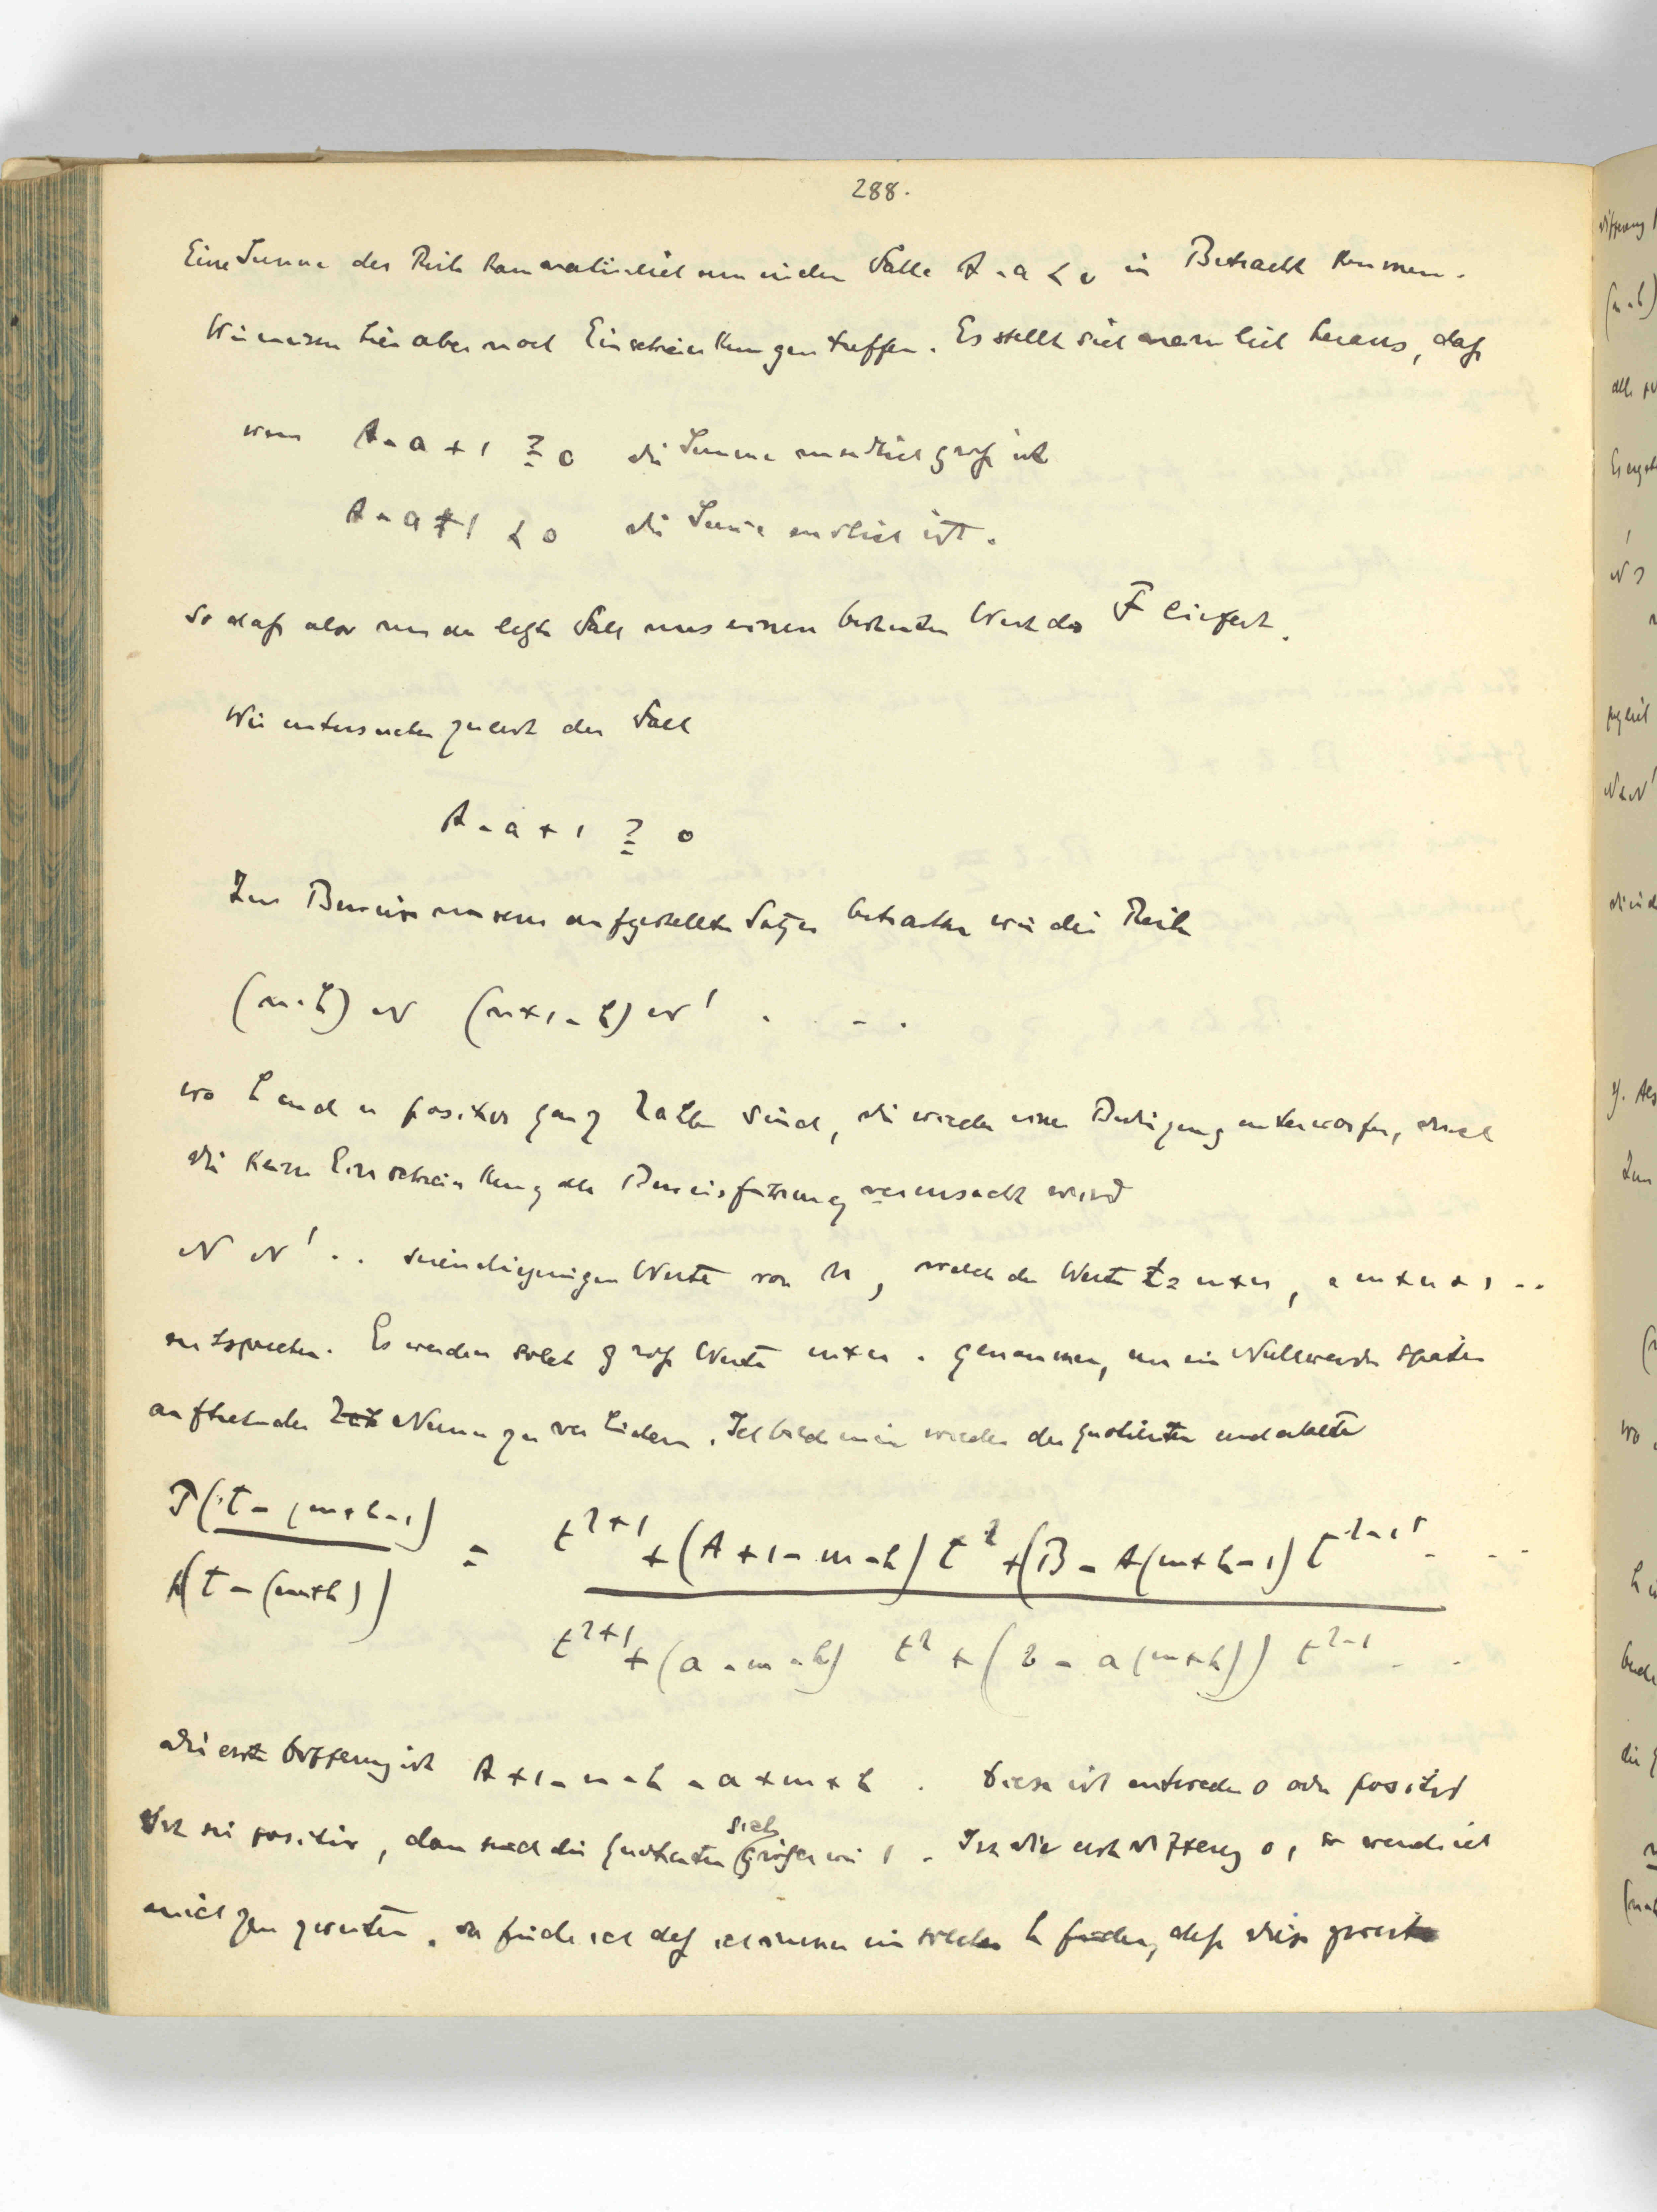 288.
Eine Summe der Reihe kann natürlich nur in dem Falle A - a < 0 in Betracht kommen.
Wir müssen hier aber noch Einschränkungen treffen. Es stellt sich nämlich heraus, daß
wenn A - a + 1 ≧ 0 die Summe unendlich groß ist
A - a + 1 < 0 die Summe endlich ist.
So daß also nur der letzte Fall uns einen bestimmten Wert des F liefert.
Wir untersuchen zuerst den Fall
A - a + 1 ≧ 0
Zum Beweise unseres aufgestellten Satzes betrachten wir die Reihe
(n-h) N (n+1-h) N' . . . .
wo h und n positive ganze Zahlen sind, die wieder einer Bedingung unterworfen, durch
die keine Einschränkung der Beweisführung verursacht wird
N N' . . seien diejenigen Werte von M, welche den Werten t = m+n, = m+n+1 . .
entsprechen. Es werden solch große Werte m+n . genommen, um ein Nullwerden später
auftretender Nenner zu verhindern. Ich bilde mir wieder den Quotienten und erhalte
P(t - (m+h-1) / p(t - (m+h)) = t^λ+1 + (A+1-m-h) t^λ + (B - A(m+h-1) t^λ-1 . . . / t^λ+1 + (a-m-h) t^λ + (b - a(m+h)) t^λ-1 . .
die erste Differenz ist A+1-m-h-a+m+h . Diese ist entweder 0 oder positiv
Ist sie positiv, dann sind die Quotienten stets größer wie 1 . Ist die erste Differenz 0, so wende ich
mich zur zweiten. da finde ich daß ich immer ein solches h finden, daß diese zweite